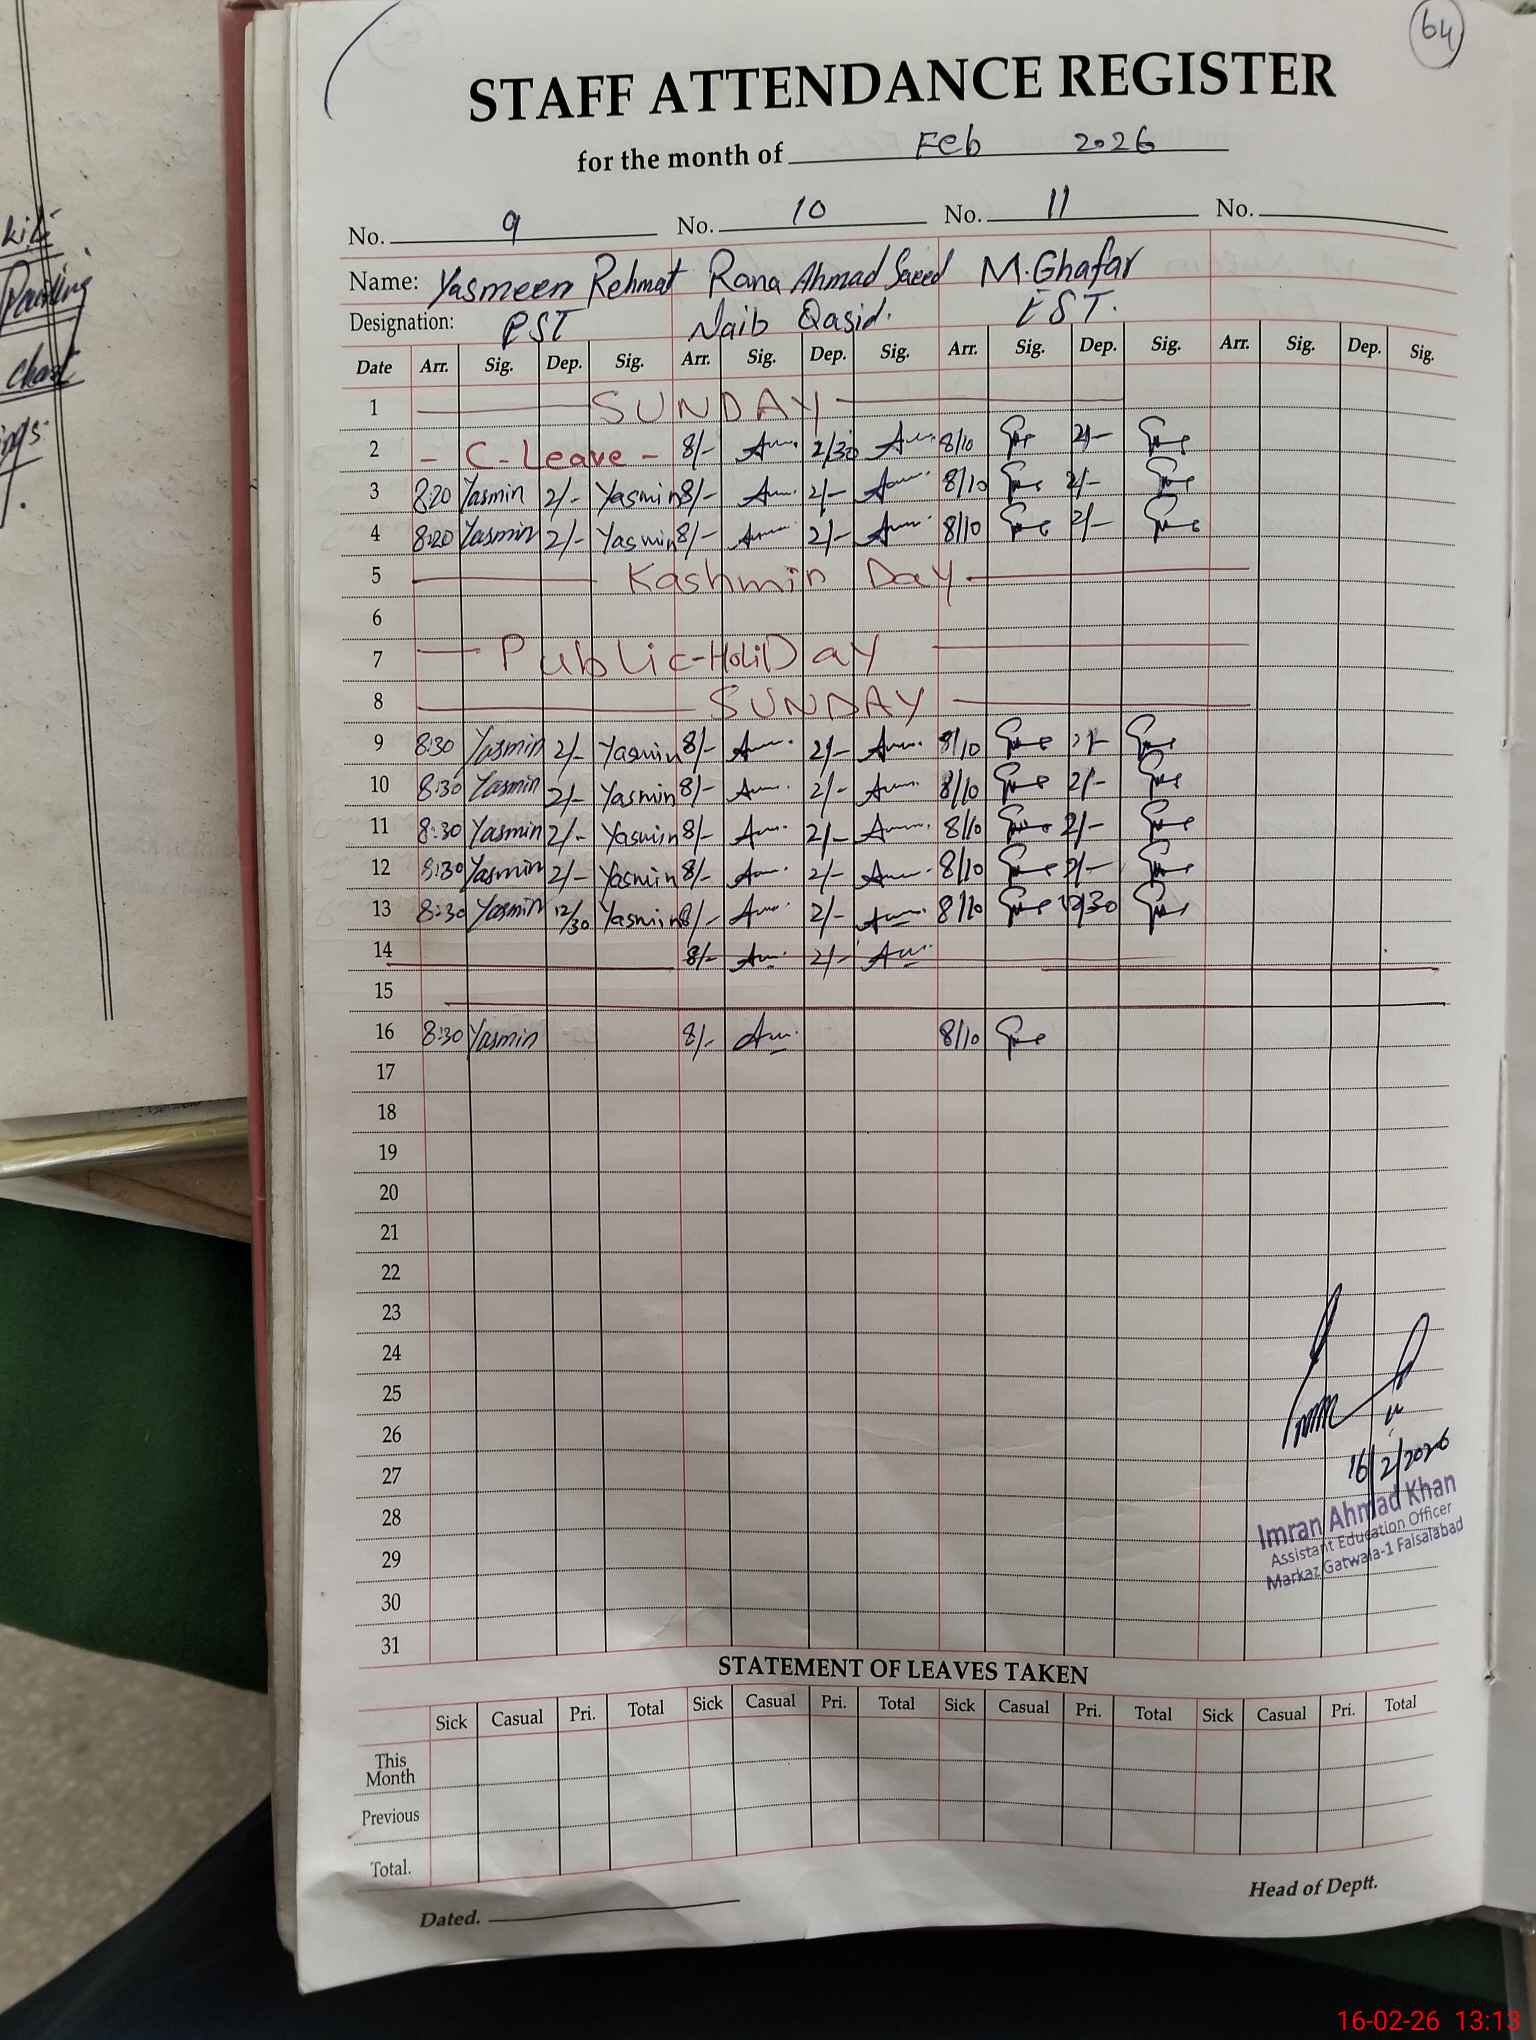 64
STAFF ATTENDANCE REGISTER
for the month of Feb 2026
No. 9 No. 10 No. 11 No.
Name: Yasmeen Rehmat Rana Ahmad Saeed M.Ghafar
Designation: PST Naib Qasid. EST.
Date Arr. Sig. Dep. Sig. Arr. Sig. Dep. Sig. Arr. Sig. Dep. Sig. Arr. Sig. Dep. Sig.
1 SUNDAY
2 - C-Leave - 8/- 2/30 8/10 2/-
3 8:20 Yasmin 2/- Yasmin 8/- 2/- 8/10 2/-
4 8:20 Yasmin 2/- Yasmin 8/- 2/- 8/10 2/-
5 Kashmir Day
6
7 Public-HoliDay
8 SUNDAY
9 8:30 Yasmin 2/- Yasmin 8/- 2/- 8/10 2/-
10 8:30 Yasmin 2/- Yasmin 8/- 2/- 8/10 2/-
11 8:30 Yasmin 2/- Yasmin 8/- 2/- 8/10 2/-
12 8:30 Yasmin 2/- Yasmin 8/- 2/- 8/10 2/-
13 8:30 Yasmin 12/30 Yasmin 8/- 2/- 8/10 12/30
14 8/- 2/-
15
16 8:30 Yasmin 8/- 8/10
17
18
19
20
21
22
23
24
25
26
27
28
29
30
31
16/2/2026
Imran Ahmad Khan
Assistant Education Officer
Markaz Gatwala-1 Faisalabad
STATEMENT OF LEAVES TAKEN
Sick Casual Pri. Total Sick Casual Pri. Total Sick Casual Pri. Total Sick Casual Pri. Total
This Month
Previous
Total.
Dated.
Head of Deptt.
Chart
16-02-26 13:13